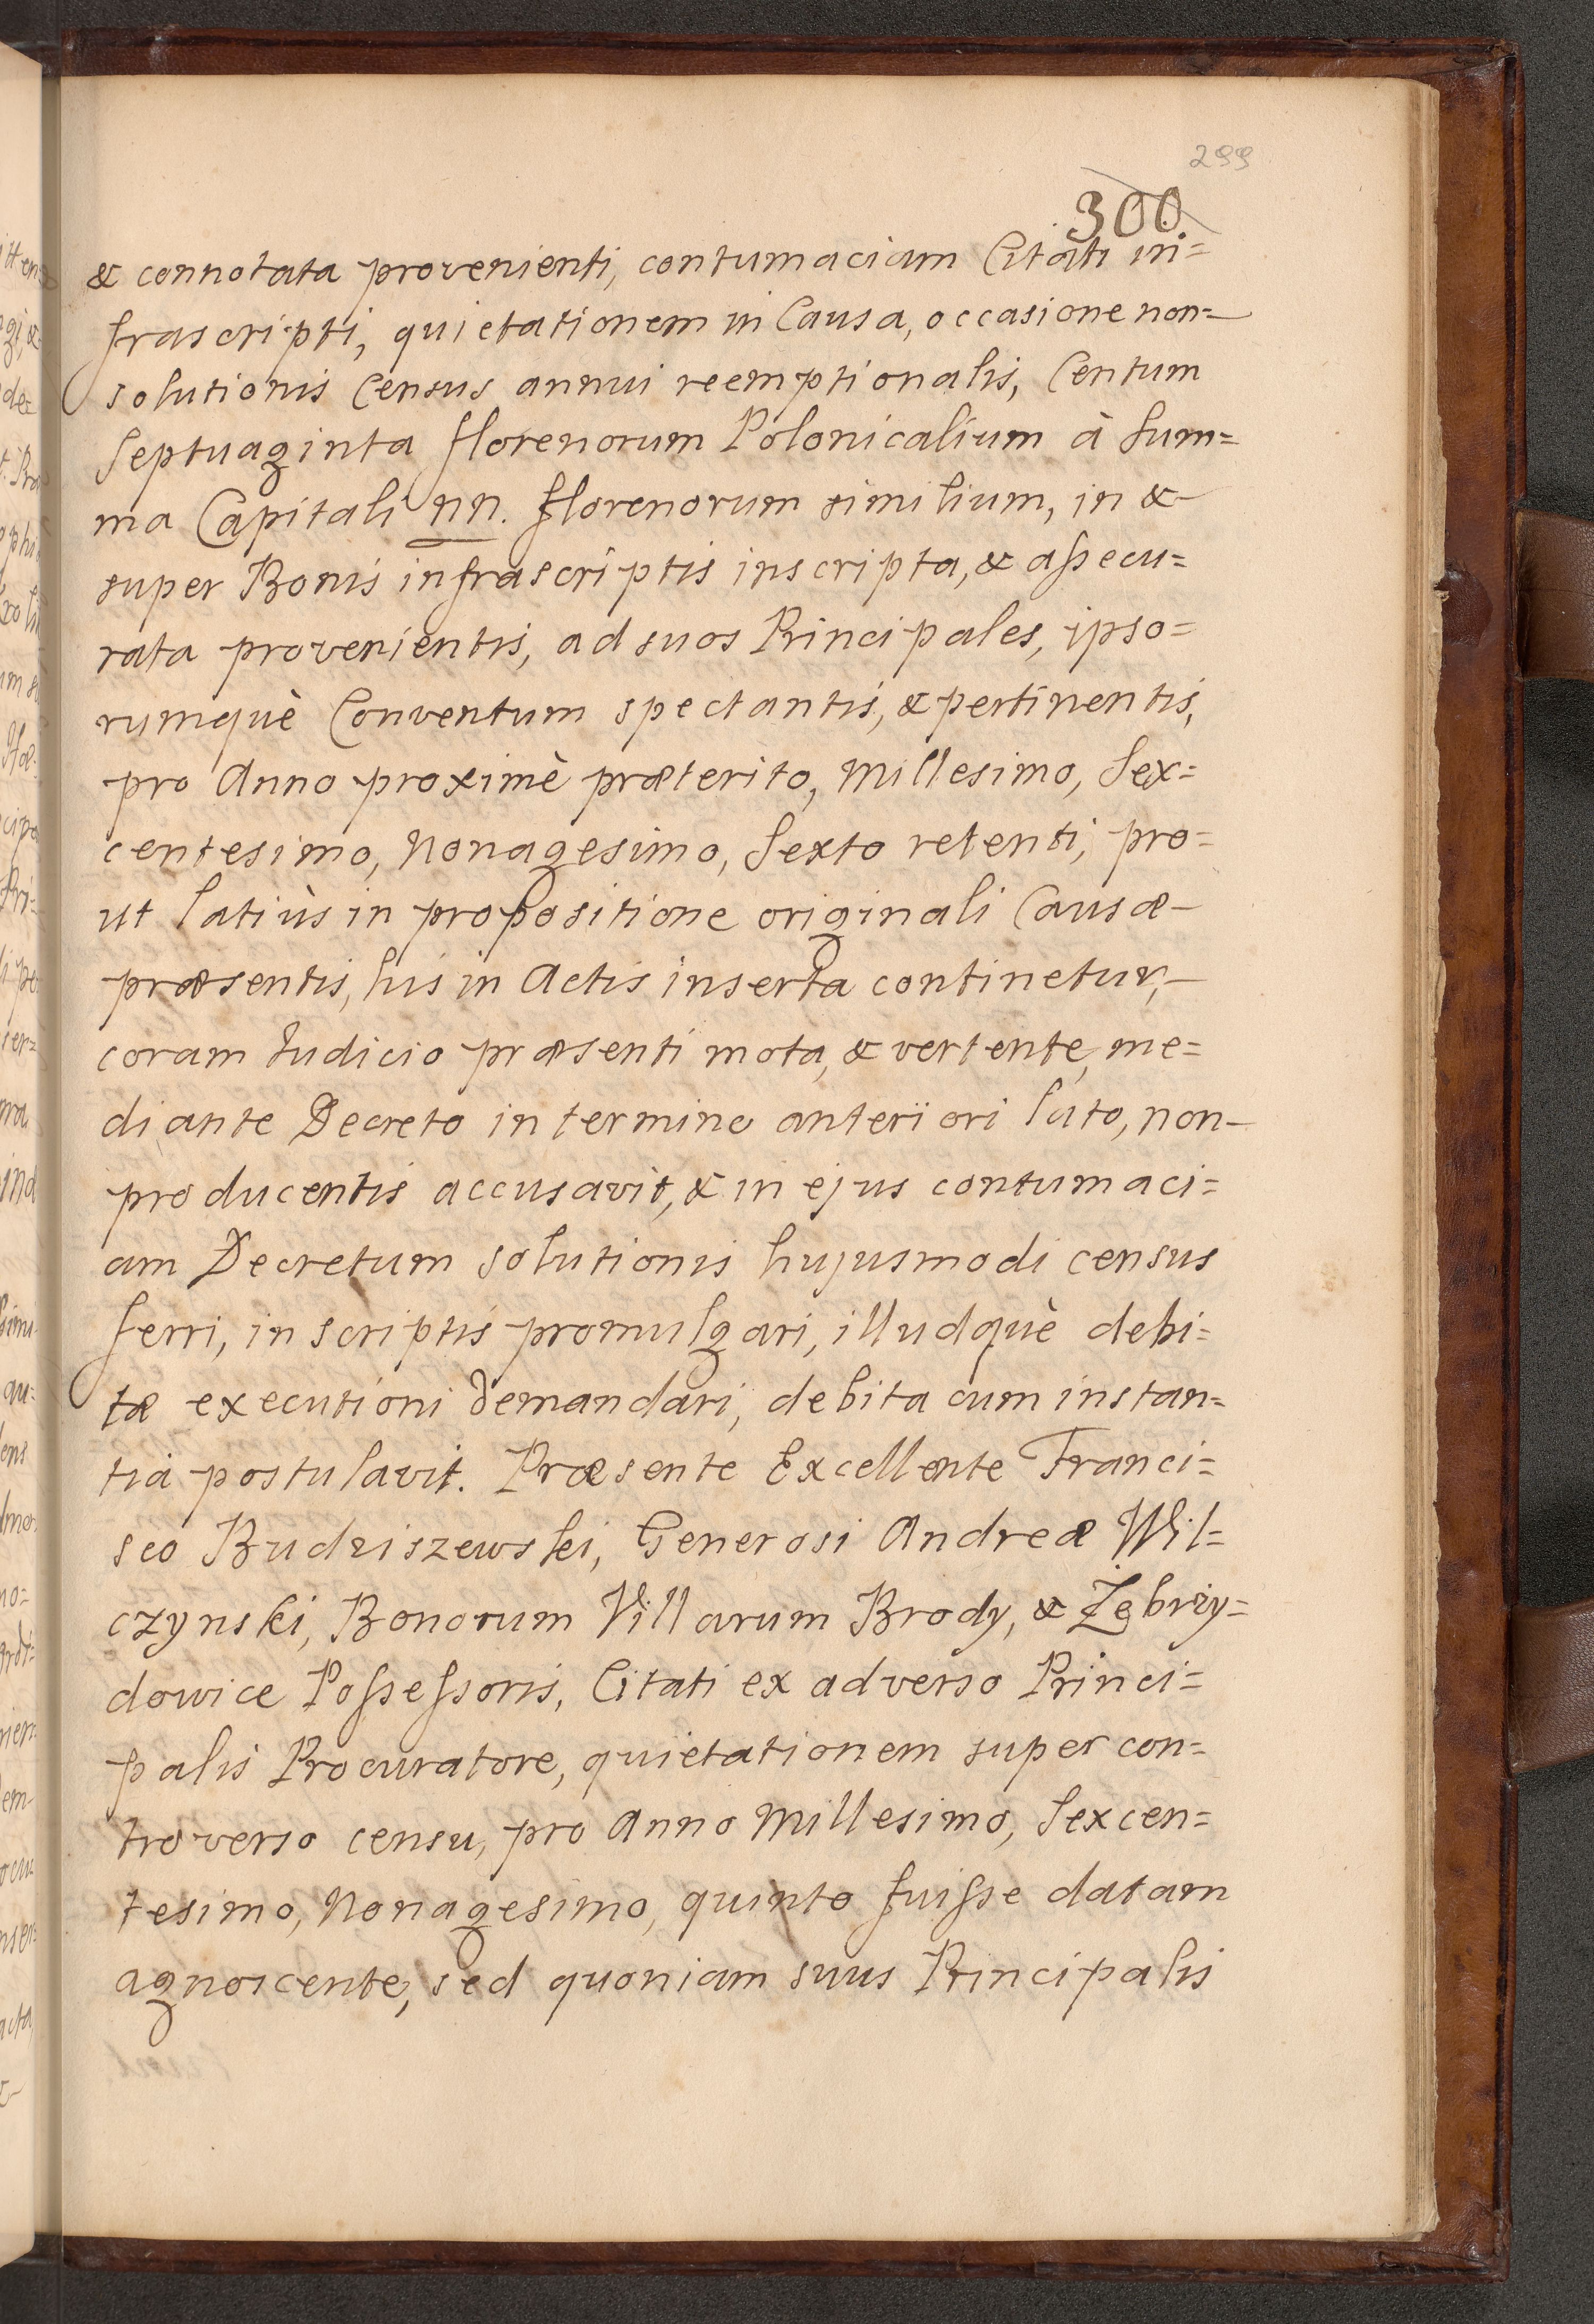 299
300
& connotata provenienti, contumaciam Citati in=
frascripti, quietationem in Causa, occasione non=
solutionis Census annui reemptionalis, Centum
Septuaginta florenorum Polonicalium à Sum=
ma Capitali nn. florenorum similium, in &
super Bonis infrascriptis inscripta, & assecu=
rata provenientis, ad suos Principales, ipso=
rumquè Conventum spectantis, & pertinentis,
pro Anno proximè præterito, Millesimo, Sex=
centesimo, Nonagesimo, Sexto retenti, pro=
ut latiùs in propositione originali Causæ
præsentis, his in Actis inserta continetur,
coram Iudicio præsenti mota, & vertente, me=
diante Decreto in termino anteriori lato, non
producentis accusavit, & in ejus contumaci=
am Decretum solutionis hujusmodi census
ferri, in scriptis promulgari, illudquè debi=
tæ executioni demandari, debita cum instan=
tia postulavit. Præsente Excellente Franci=
sco Budziszewski, Generosi Andreæ Wil=
czynski, Bonorum Villarum Brody, & Zębrzy=
dowice Possessoris, Citati ex adverso Princi=
palis Procuratore, quietationem super con=
troverso censu, pro Anno Millesimo, Sexcen=
tesimo, Nonagesimo, quinto fuisse datam
agnoscente, sed quoniam suus Principalis